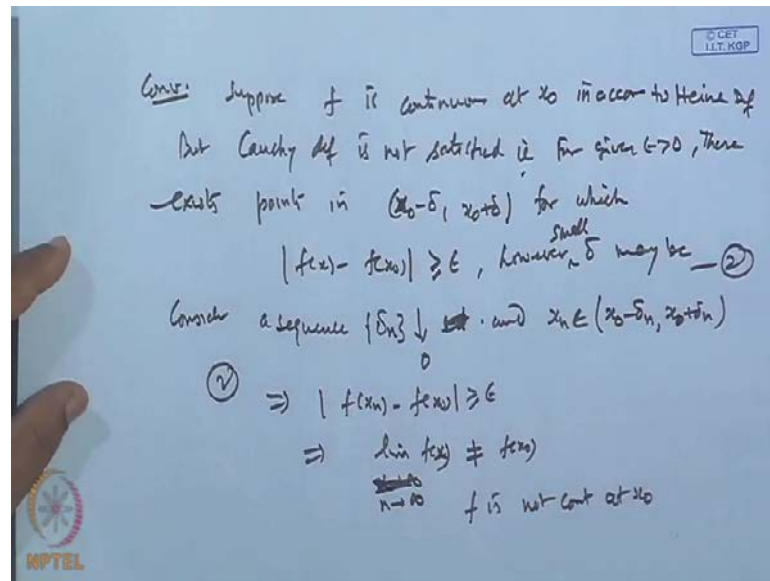 © CET
I.I.T. KGP
Conv: Suppose f is continuous at x₀ in accor to Heine Def
But Cauchy def is not satisfied ie for given ϵ>0, There
exists points in (x₀-δ, x₀+δ) for which
|f(x) - f(x₀)| ≥ ϵ, however small δ may be — ②
Consider a sequence {δn} ↓ and xn ∈ (x₀-δn, x₀+δn)
0
② ⇒ | f(xn) - f(x₀)| ≥ ϵ
⇒ lim f(xn) ≠ f(x₀)
n→∞
f is not cont at x₀
NPTEL